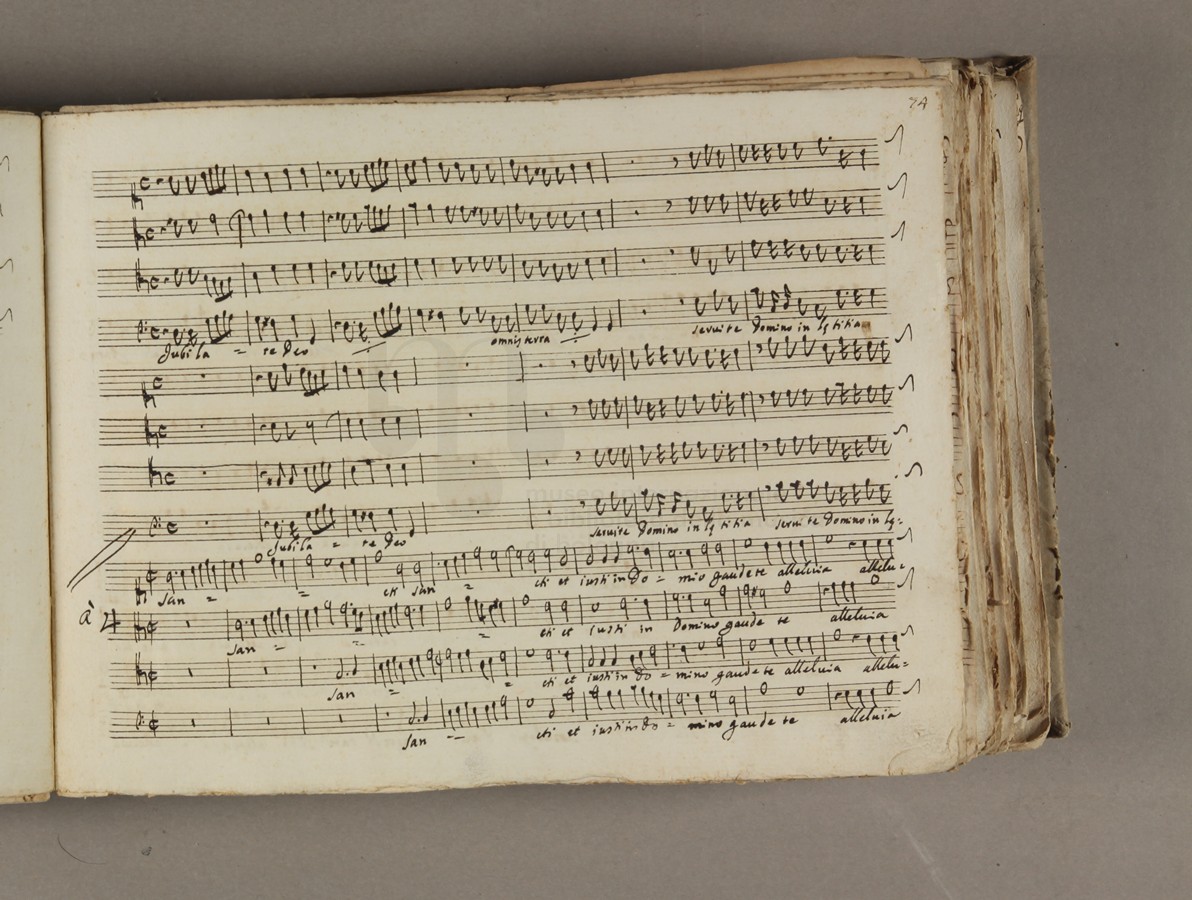 74
Jubila = re Deo omnis terra servite Domino in lętitia
Jubila = re Deo servite Domino in lętitia servite Domino in lę=
San = = cti San = cti et iusti in Do = mino gaudete alleluia allelu=
à 4
San = = = cti et iusti in Domino gaude te alleluia
San = = cti et iusti in Do = mino gaudete alleluia allelu=
San = cti et iusti in Do = mino gaude te alleluia